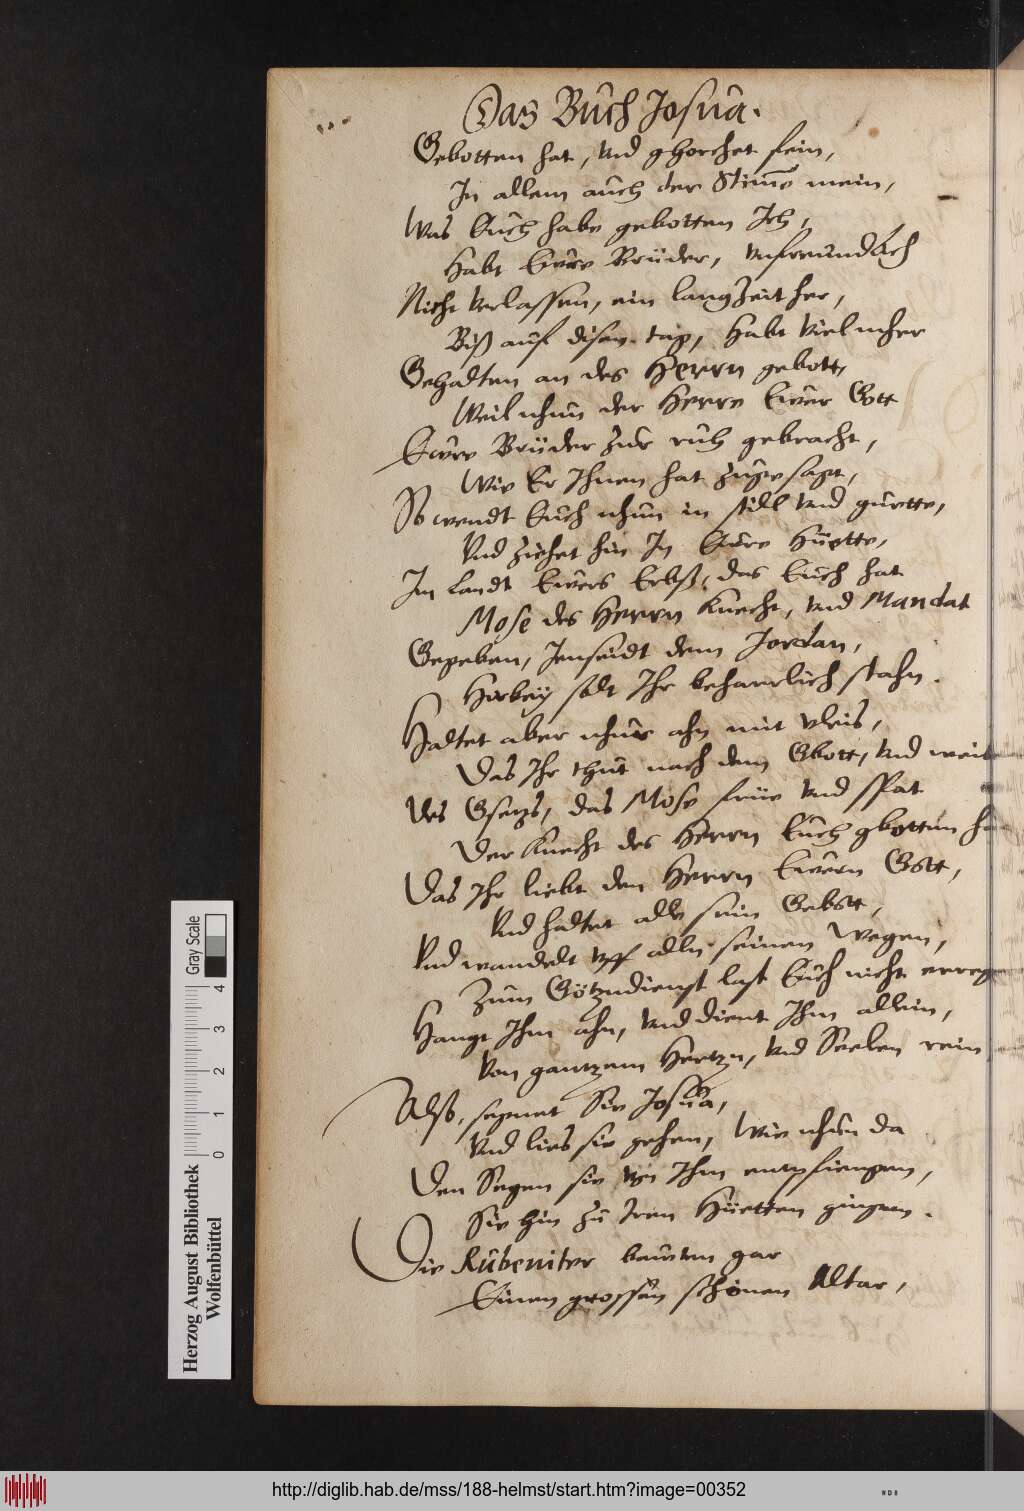 Das Buch Josua.
Gebotten hat, vnd ghorchet fein,
In allem auch der Stimē mein,
Was Euch habe gebotten Ich,
Habt Ewre Brüder, vnfreundlich
Nicht verlassen, ein lang Zeit her,
Biß auf disen tag, Habt viel mher
Gehalten an des Herrn gebott,
Weil nhun der Herre Ewer Gott
Ewre Brüder zur ruh gebracht,
Wie Er Ihnen hat zugesagt,
So wendt Euch nhun in still vnd guette,
Vnd ziehet hin In Eure Huette,
Im Landt Ewers Erbß, das Euch hat
Mose des Herrn Knecht, vnd Mandat
Gegeben, Jenseidt dem Jordan,
Hierbey solt Ihr beharrlich stahn.
Haltet aber nhur ahn mit vleis,
Das Ihr thut nach dem Gbott, vnd weis
Des Gsetzs, das Mose früe vnd spat
Der Knecht des Herrn Euch gbotten ha
Das Ihr liebt den Herrn Ewern Gott,
Vnd haltet alle sein Gebott,
Vnd wandelt vff alln seinen Wegen,
Zum Götzndienst last Euch nicht erreg
Hangt Ihm ahn, vnd dient Ihm allein,
Von gantzem Hertzn, vnd Seelen rein
Alß, segnet Sie Josua,
Vnd lies sie gehen, Wie nhun da
Den Segen sie von Ihm entpfiengen,
Sie hin zu Iren Hüetten giengen.
Die Rubeniter bauten gar
Einen grossen schönen Altar,
Gray Scale
0 1 2 3 4
Herzog August Bibliothek
Wolfenbüttel
http://diglib.hab.de/mss/188-helmst/start.htm?image=00352
WDB